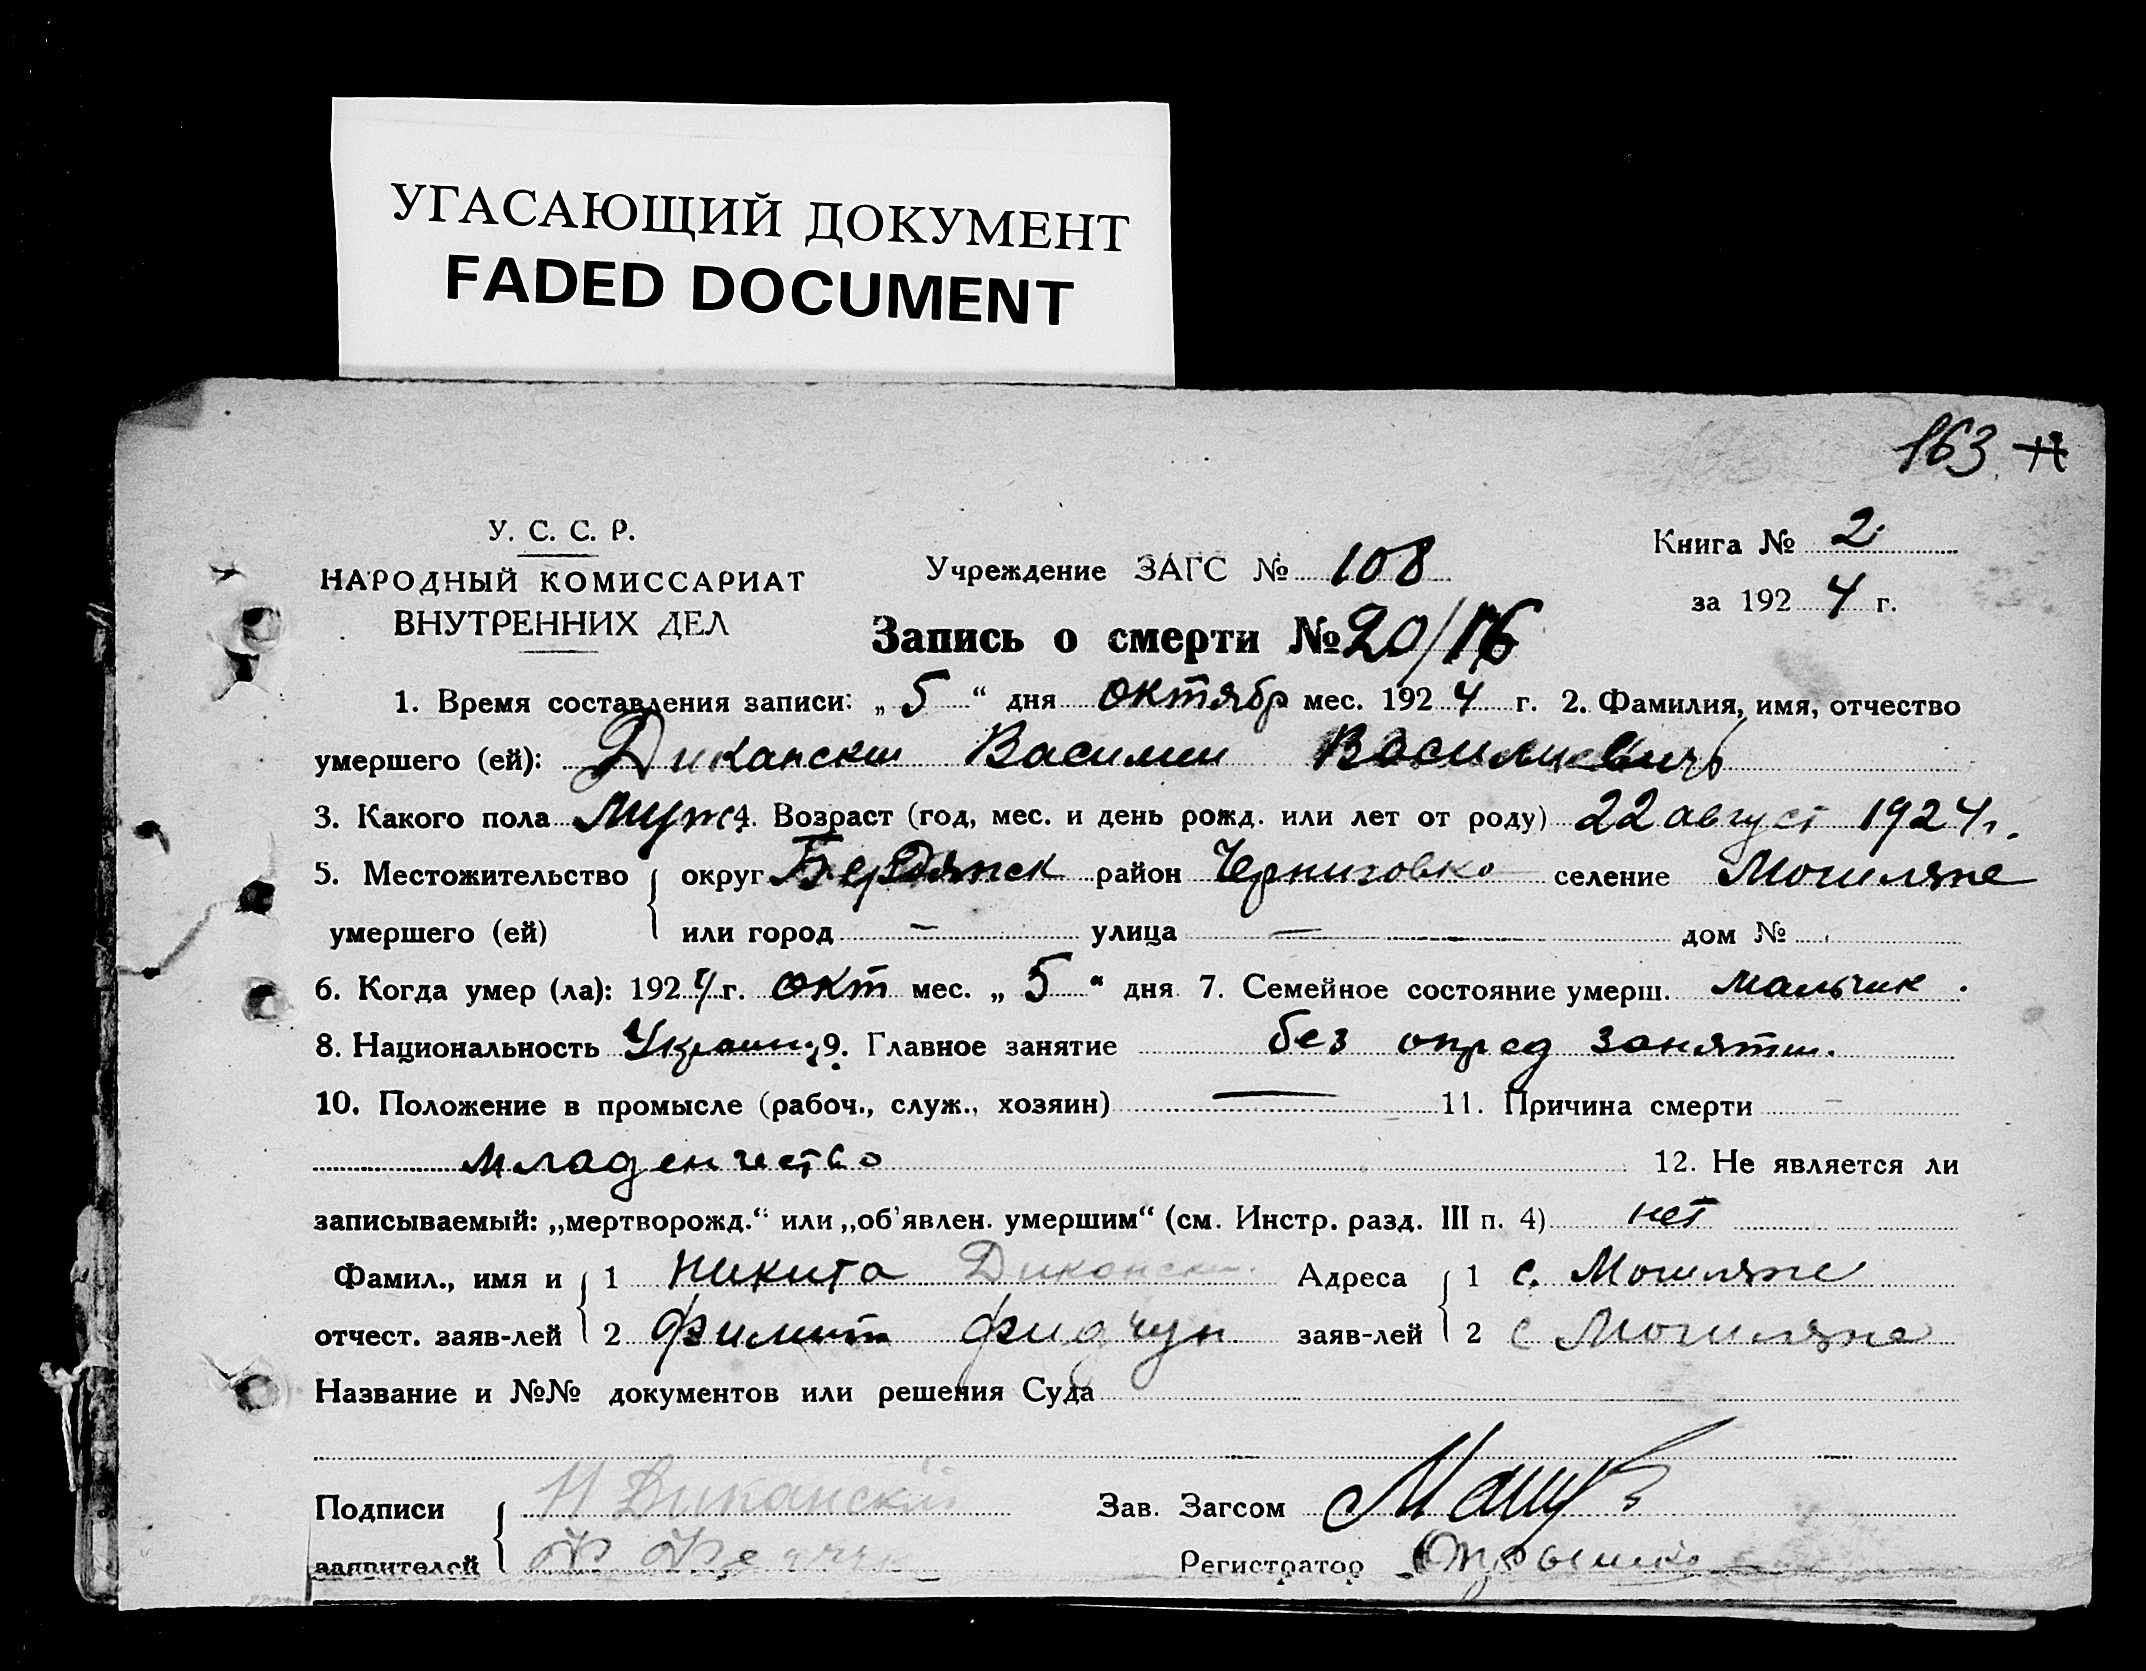 УГАСАЮЩИЙ ДОКУМЕНТ
FADED DOCUMENT
163
У. С. С. Р.
НАРОДНЫЙ КОМИССАРИАТ
ВНУТРЕННИХ ДЕЛ
Учреждение ЗАГС № 108
Книга № 2
за 1924 г.
Запись о смерти № 20/16
1. Время составления записи: „5“ дня октябр мес. 1924 г. 2. Фамилия, имя, отчество
умершего (ей): Дикански Василии Василиевичь
3. Какого пола Муж 4. Возраст (год, мес. и день рожд. или лет от роду) 22 август 1924 г.
5. Местожительство округ Бердянск район Черниговко селение Могиляне
умершего (ей) или город — улица — дом №
6. Когда умер (ла): 1924 г. окт мес. „5“ дня 7. Семейное состояние умерш. мальчик.
8. Национальность Украин 9. Главное занятие без опред заняти.
10. Положение в промысле (рабоч., служ., хозяин) — 11. Причина смерти
младенчество 12. Не является ли
записываемый: „мертворожд.“ или „об'явлен. умершим“ (см. Инстр. разд. III п. 4) нет
Фамил., имя и 1 Никита Дикански. Адреса 1 с. Могиляне
отчест. заяв-лей 2 заяв-лей 2 с Могиляне
Название и №№ документов или решения Суда
Подписи Н Диканский Зав. Загсом
заявителей Регистратор